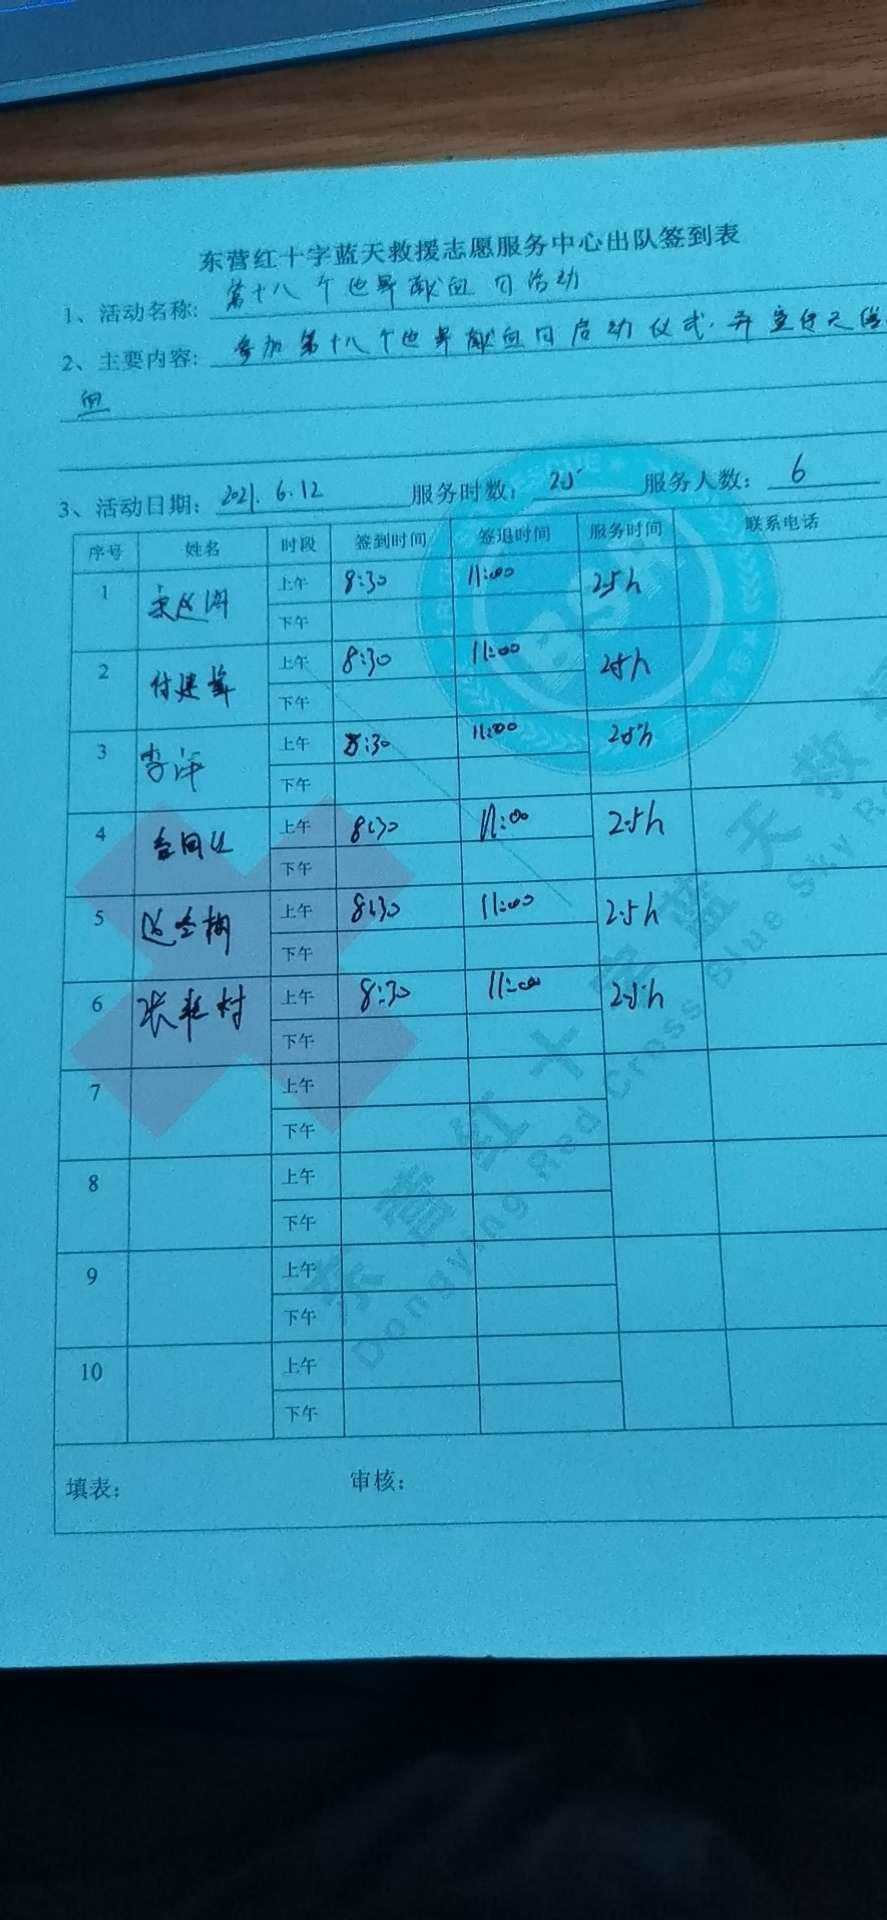 东营红十字蓝天救援志愿服务中心出队签到表
1、活动名称: 第十八个世界献血日活动
2、主要内容: 参加第十八个世界献血日启动仪式,并宣传无偿
血
3、活动日期: 2021.6.12 服务时数: 2.5 服务人数: 6
序号 姓名 时段 签到时间 签退时间 服务时间 联系电话
1 上午 8:30 11:00 2.5h
下午
2 付建 上午 8:30 11:00 2.5h
下午
3 李 上午 8:30 11:00 2.5h
下午
4 上午 8:30 11:00 2.5h
下午
5 上午 8:30 11:00 2.5h
下午
6 张 村 上午 8:30 11:00 2.5h
下午
7 上午
下午
8 上午
下午
9 上午
下午
10 上午
下午
填表: 审核:
BSR
东营红十字蓝天救
Dongying Red Cross Blue Sky R